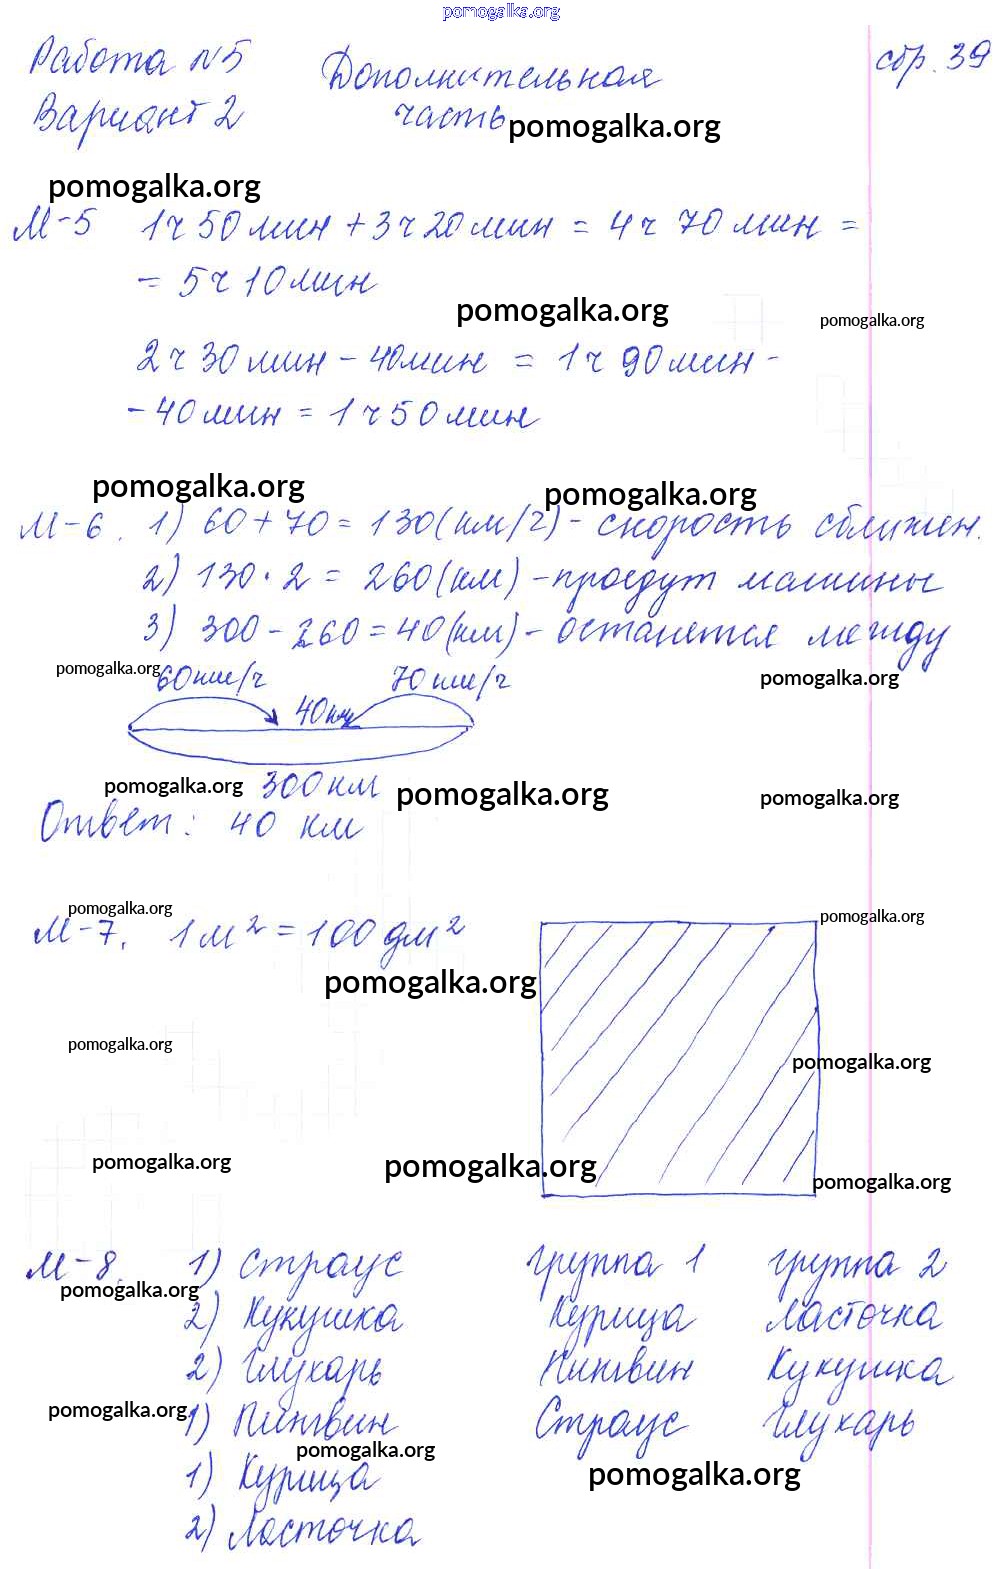 pomogalka.org
Работа №5 Дополнительная стр. 39
Вариант 2 часть pomogalka.org
pomogalka.org
М-5 1ч 50 мин + 3ч 20 мин = 4ч 70 мин =
= 5ч 10 мин
pomogalka.org pomogalka.org
2ч 30 мин - 40 мин = 1ч 90 мин -
- 40 мин = 1ч 50 мин
pomogalka.org pomogalka.org
М-6. 1) 60 + 70 = 130 (км/ч) - скорость сближен.
2) 130 · 2 = 260 (км) - проедут машины
3) 300 - 260 = 40 (км) - останется между
pomogalka.org 60 км/ч 70 км/ч pomogalka.org
40 км
pomogalka.org 300 км pomogalka.org pomogalka.org
Ответ: 40 км
pomogalka.org pomogalka.org
М-7. 1 м² = 100 дм²
pomogalka.org
pomogalka.org pomogalka.org
pomogalka.org pomogalka.org pomogalka.org
М-8. 1) Страус группа 1 группа 2
pomogalka.org
2) Кукушка Курица Ласточка
2) Глухарь Пингвин Кукушка
pomogalka.org 1) Пингвин Страус Глухарь
pomogalka.org
1) Курица pomogalka.org
2) Ласточка